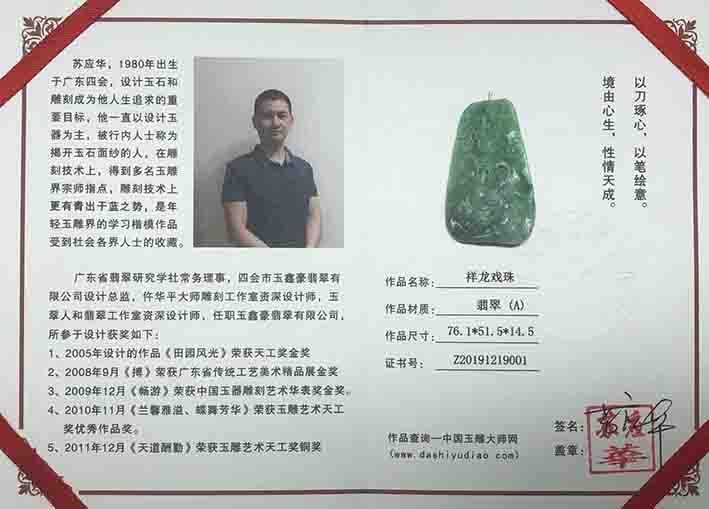 苏应华，1980年出生
于广东四会，设计玉石和
雕刻成为他人生追求的重
要目标，他一直以设计玉
器为主，被行内人士称为
揭开玉石面纱的人，在雕
刻技术上，得到多名玉雕
界宗师指点，雕刻技术上
更有青出于蓝之势，是年
轻玉雕界的学习楷模作品
受到社会各界人士的收藏。
广东省翡翠研究学社常务理事，四会市玉鑫豪翡翠有
限公司设计总监，仵华平大师雕刻工作室资深设计师，玉
翠人和翡翠工作室资深设计师，任职玉鑫豪翡翠有限公司，
所参于设计获奖如下：
1、2005年设计的作品《田园风光》荣获天工奖金奖
2、2008年9月《搏》荣获广东省传统工艺美术精品展金奖
3、2009年12月《畅游》荣获中国玉器雕刻艺术华表奖金奖。
4、2010年11月《兰馨雅溢、蝶舞芳华》荣获玉雕艺术天工
奖优秀作品奖。
5、2011年12月《天道酬勤》荣获玉雕艺术天工奖铜奖
以刀琢心，以笔绘意。
境由心生，性情天成。
作品名称： 祥龙戏珠
作品材质： 翡翠 (A)
作品尺寸： 76.1*51.5*14.5
证书号： Z20191219001
作品查询—中国玉雕大师网
(www.dashiyudiao.com)
签名：
盖章：
苏应华